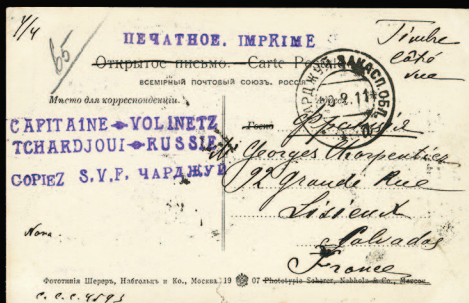 4/4
65
ПЕЧАТНОЕ. IMPRIME
Timbre
côté
vue
Открытое письмо. — Carte Po
ВСЕМІРНЫЙ ПОЧТОВЫЙ СОЮЗЪ. РОССІЯ
ЧАРДЖУЙ ЗАКАСП. ОБЛ.
8.11
Мѣсто для корреспонденціи.
CAPITAINE VOLINETZ
TCHARDJOUI RUSSIE
COPIEZ S.V.P. ЧАРДЖУЙ
Франція
Mr Georges Charpentier
92 Grande Rue
Lisieux
Calvados
France
Nova.
Фототипія Шереръ, Набгольцъ и Ко., Москва. 19 07 Phototypie Scherer, Nabholz & Co., Moscou.
C.C.C. 4593